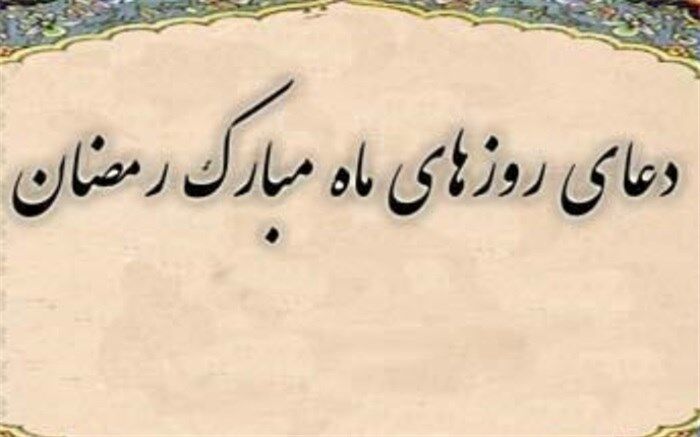 دعای روزهای ماه مبارک رمضان